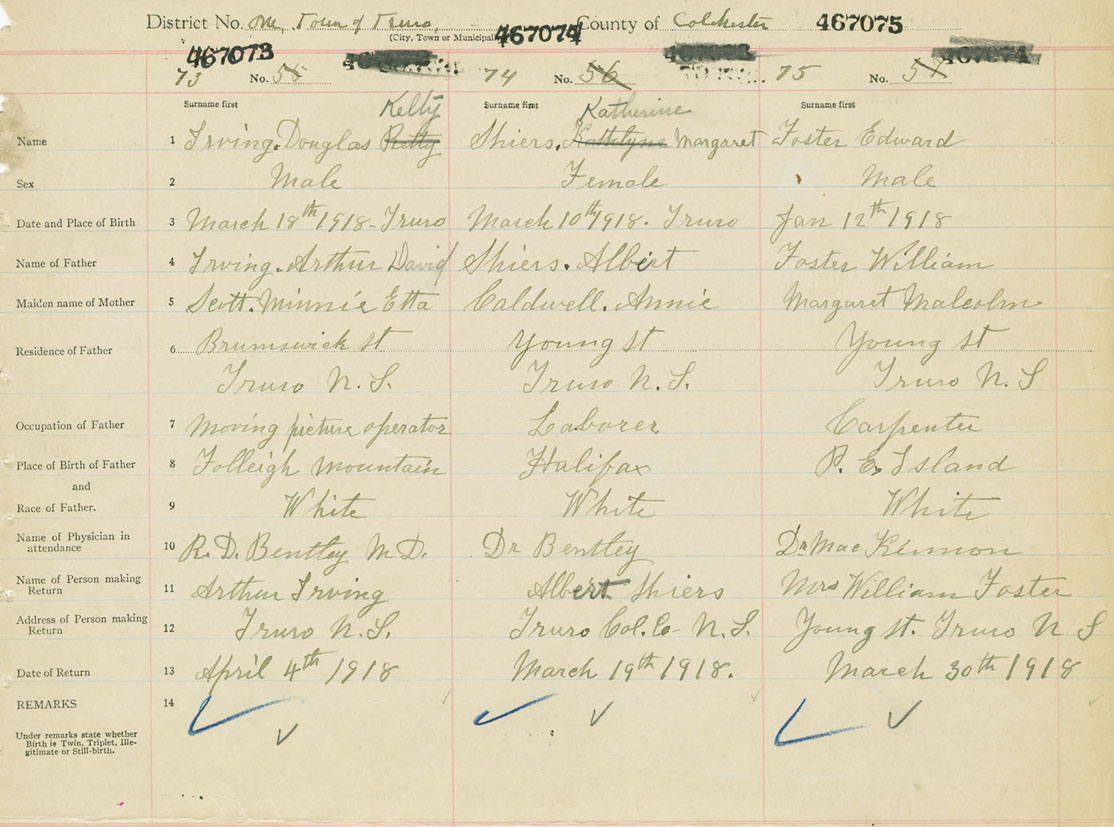 District No. One, Town of Truro, County of Colchester 467075
(City, Town or Municipality) 467074
467073
73 No. 55 74 No. 56 75 No. 57
Surname first Kelly Surname first Katherine Surname first
Name 1 Irving. Douglas Shiers. Kathlyne Margaret Foster Edward
Sex 2 Male Female Male
Date and Place of Birth 3 March 18th 1918 - Truro March 10th 1918. Truro Jan 12th 1918
Name of Father 4 Irving. Arthur David Shiers. Albert Foster William
Maiden name of Mother 5 Scott. Minnie Etta Caldwell. Annie Margaret Malcolm
Residence of Father 6 Brumswick St Young St Young St
Truro N.S. Truro N.S. Truro N.S
Occupation of Father 7 Moving picture operator Laborer Carpenter
Place of Birth of Father 8 Folleigh Mountain Halifax P. E. Island
and
Race of Father. 9 White White White
Name of Physician in
attendance 10 R. D. Bentley M.D. Dr Bentley Dr MacKinnon
Name of Person making
Return 11 Arthur Irving Albert Shiers Mrs William Foster
Address of Person making
Return 12 Truro N.S. Truro Col. Co - N.S. Young St. Truro N S
Date of Return 13 April 4th 1918 March 19th 1918. March 30th 1918
REMARKS 14
Under remarks state whether
Birth is Twin, Triplet, Ille-
gitimate or Still-birth.